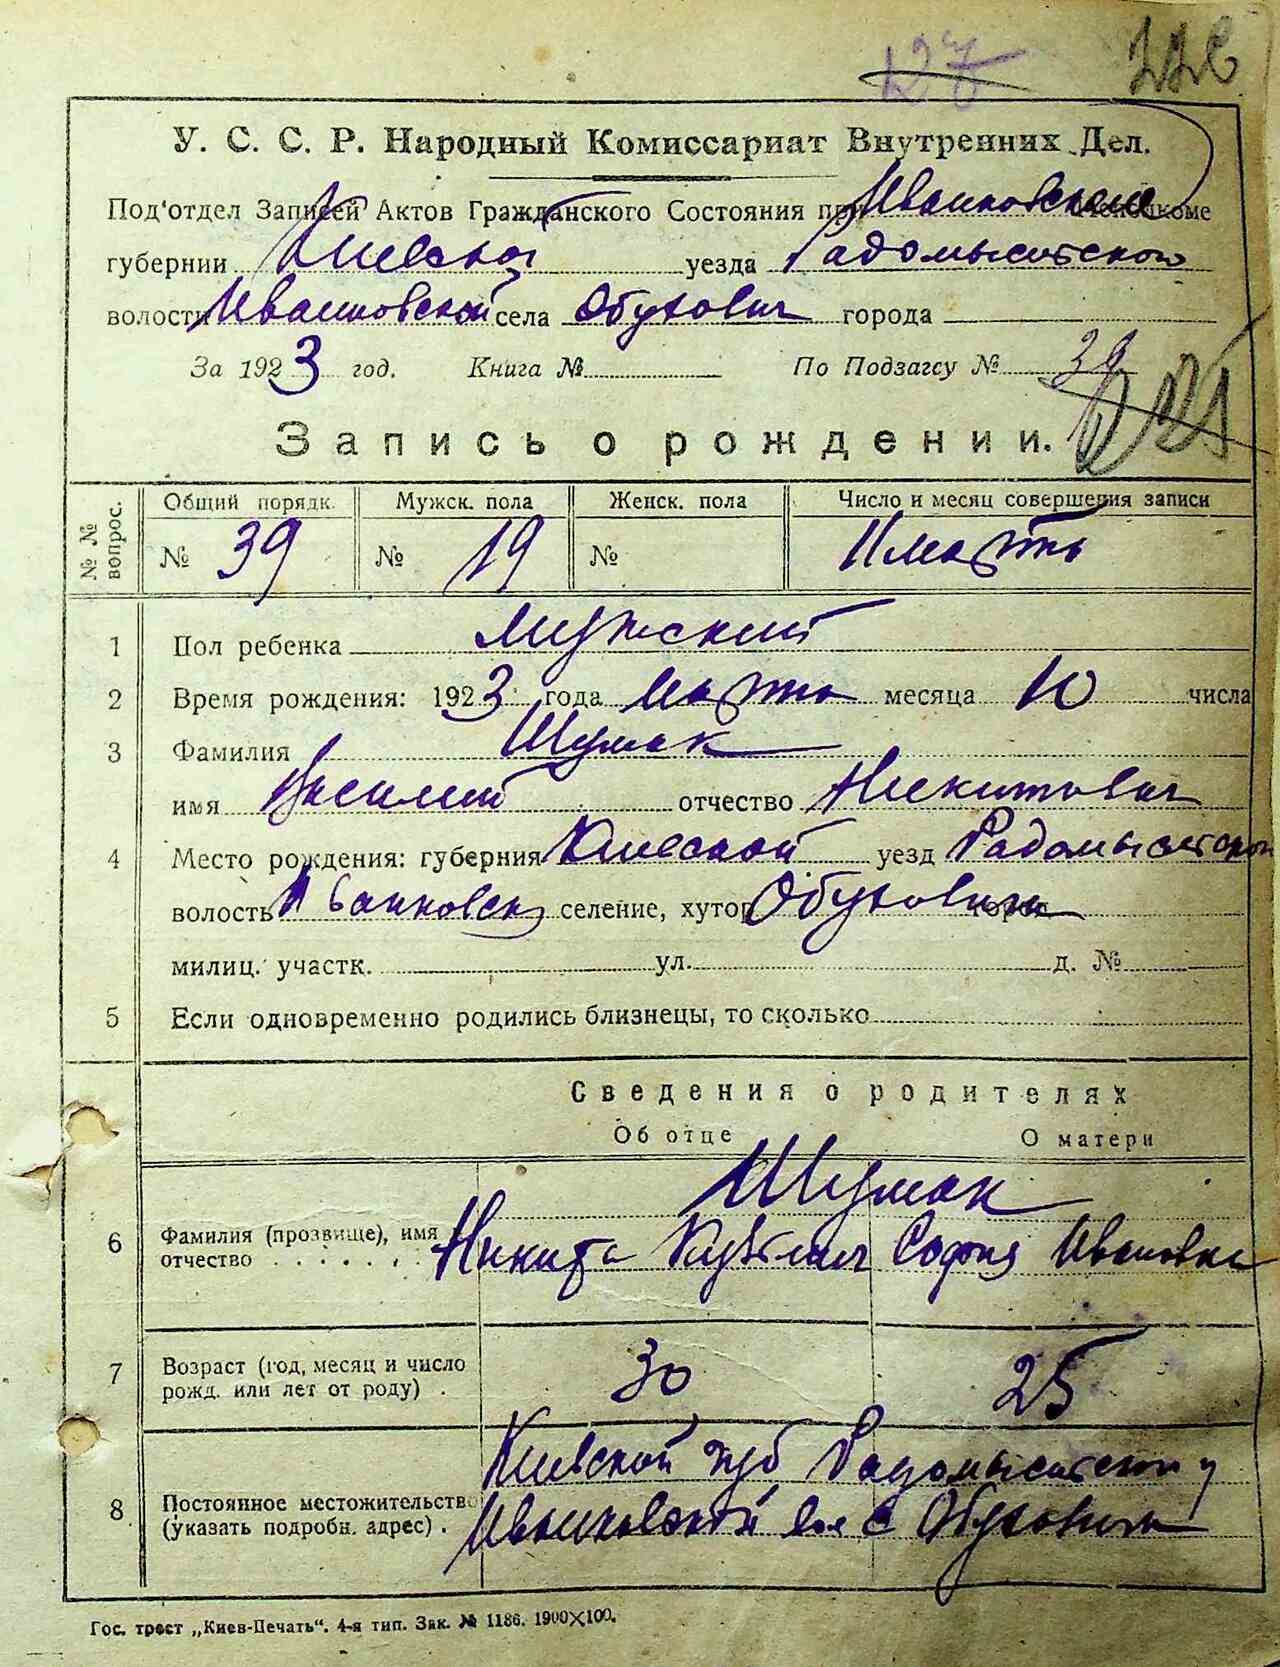 127 226
У. С. С. Р. Народный Комиссариат Внутренних Дел.
Под'отдел Записей Актов Гражданского Состояния при Иванковском
губернии Киевской уезда Радомысльского
волости Иванковской села Обухович города
За 1923 год. Книга № По Подзагсу № 39
Запись о рождении.
№ № вопрос. Общий порядк. Мужск. пола Женск. пола Число и месяц совершения записи
№ 39 № 19 № марта
1 Пол ребенка Мужский
2 Время рождения: 1923 года марта месяца 10 числа
3 Фамилия Шумак
имя Василий отчество Никитович
4 Место рождения: губерния Киевской уезд Радомысльской
волость Иванковск селение, хутор Обуховичи
милиц. участк. ул. д. №
5 Если одновременно родились близнецы, то сколько
Сведения о родителях
Об отце О матери
Шумак
6 Фамилия (прозвище), имя отчество Никита Кузьмич София Ивановна
7 Возраст (год, месяц и число рожд. или лет от роду) 30 25
Киевской губ Радомысльского у
8 Постоянное местожительство (указать подробн. адрес) Иванковской вол с Обуховичи
Гос. трест „Киев-Печать“. 4-я тип. Зак. № 1186. 1900×100.